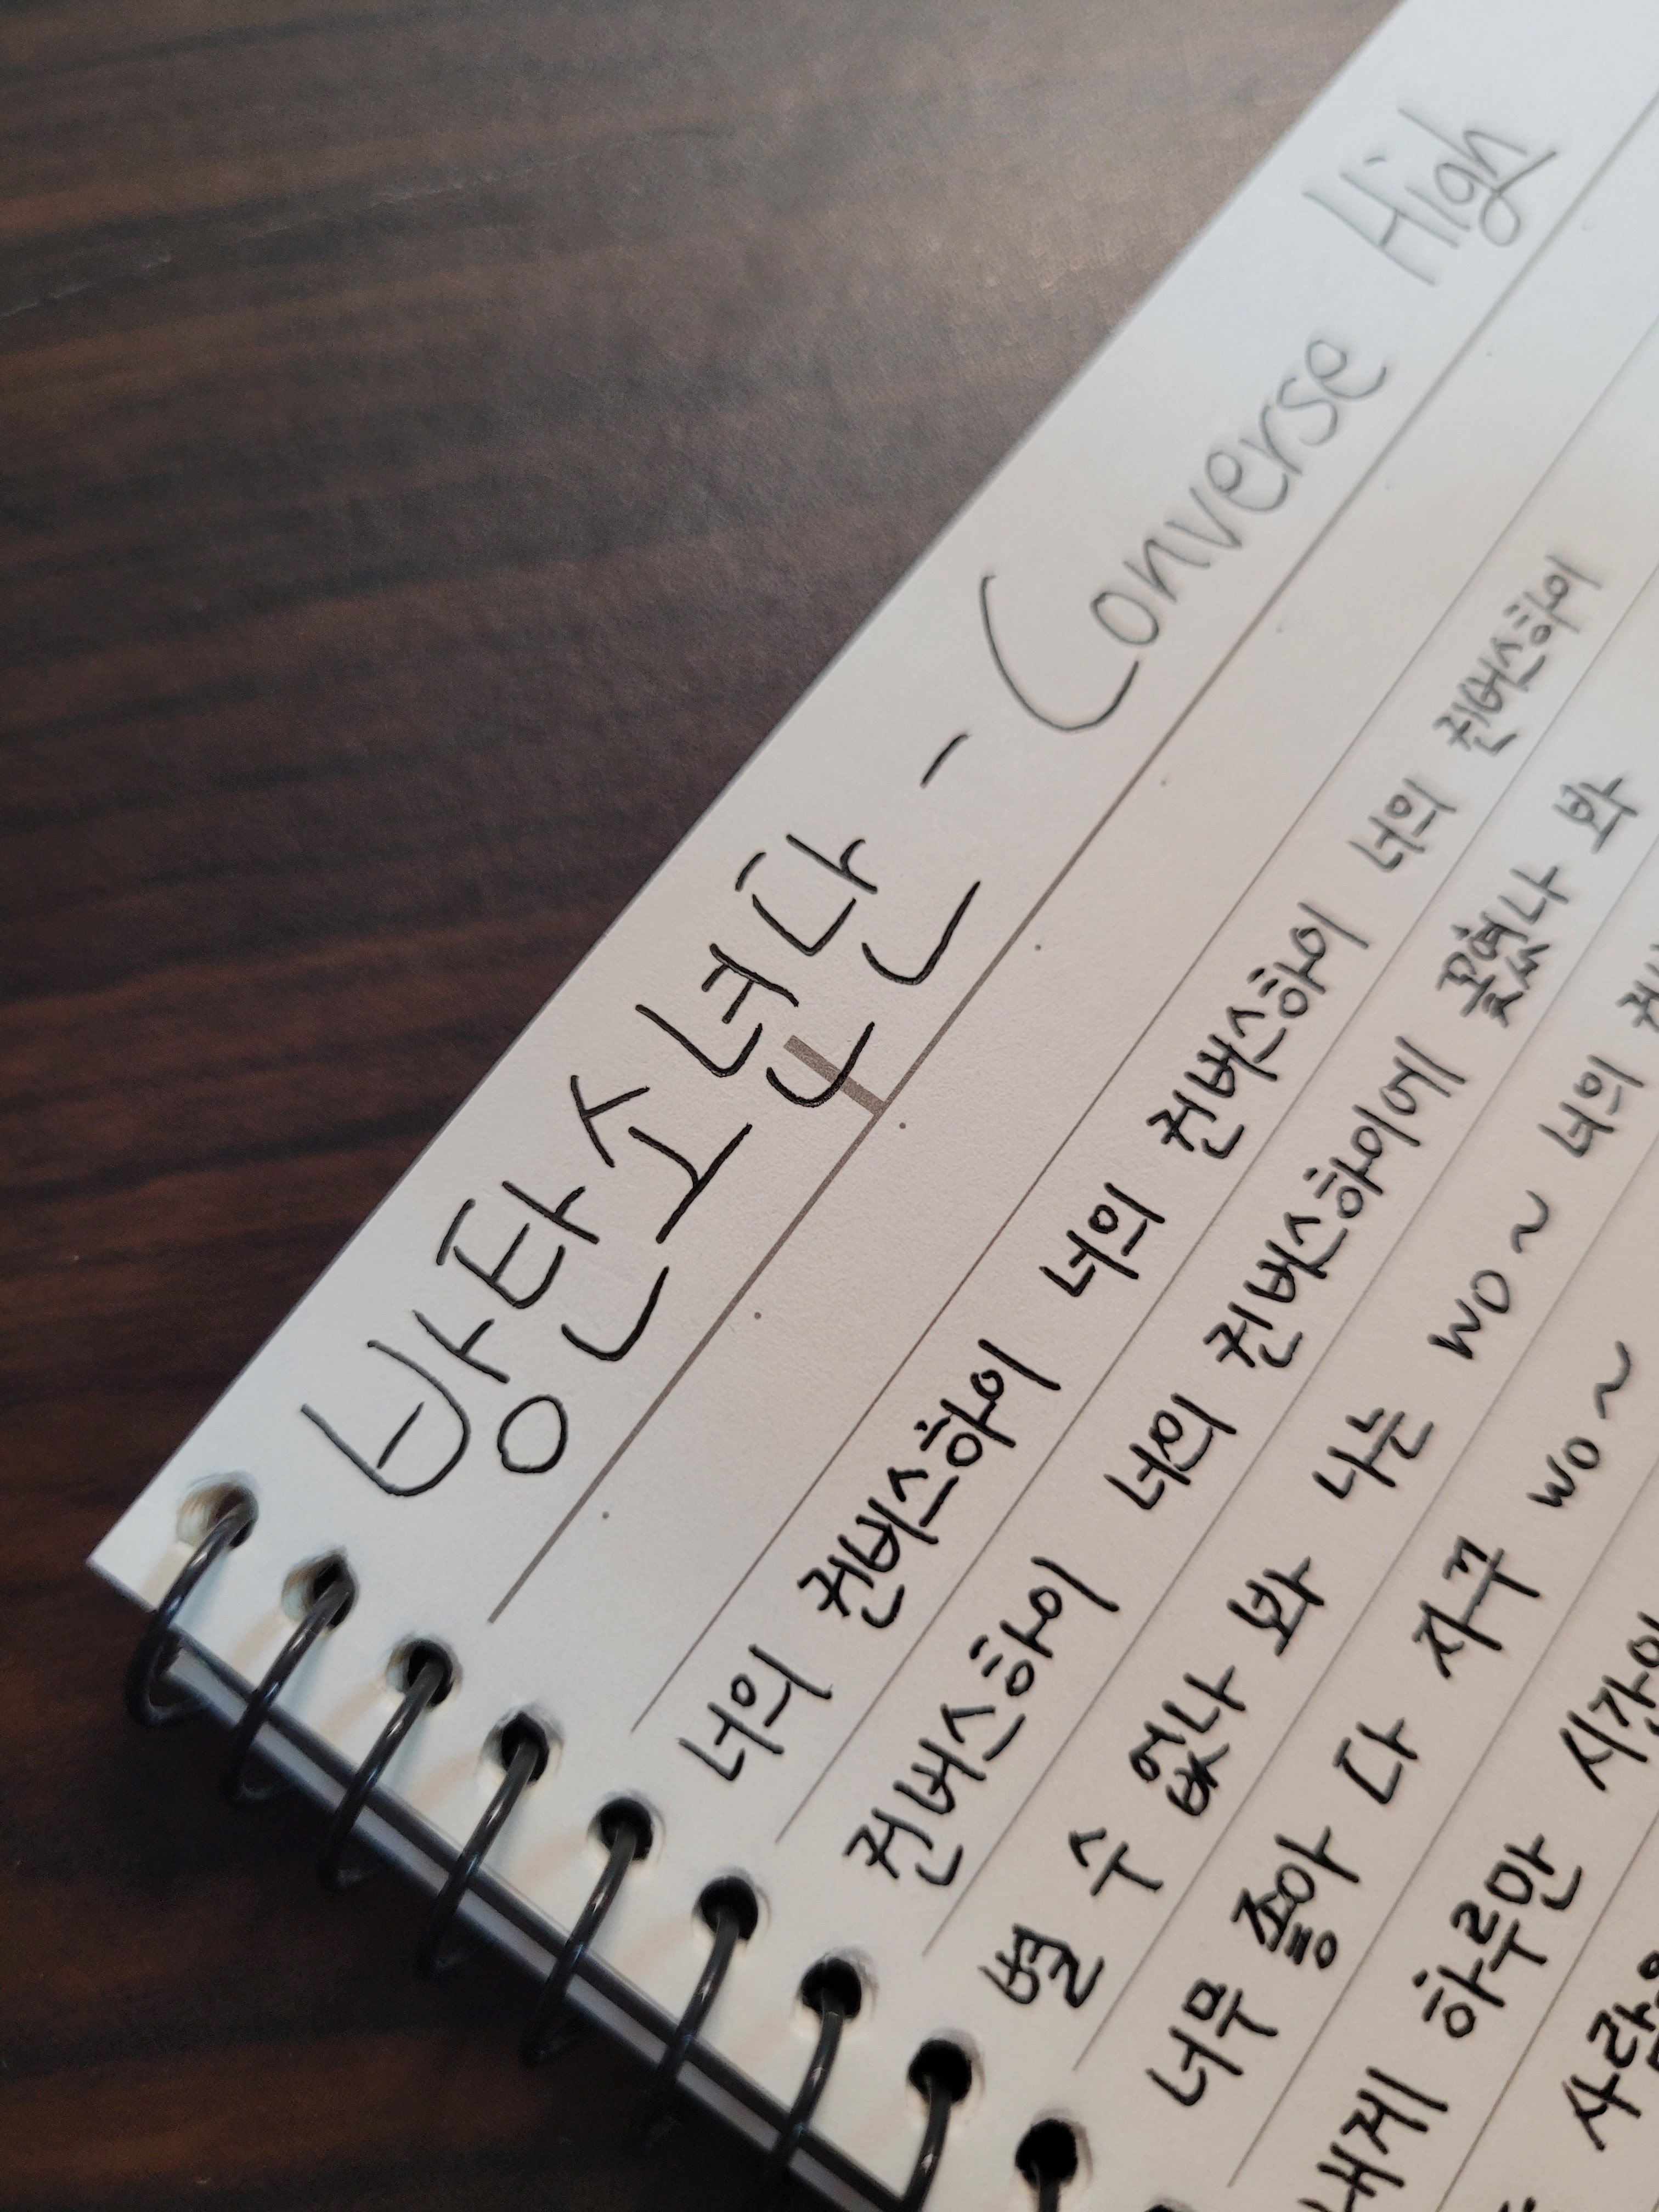 방탄소년단 - Converse High
너의 컨버스하이 너의 컨버스하이 너의 컨버스하이
컨버스하이 너의 컨버스하이에 꽂혔나 봐
별 수 없나 봐 나는 wo ~ 너의
너무 좋아 다 자꾸 wo ~
내게 하루만